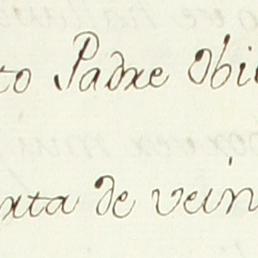 to Padre Obi
rta de vein